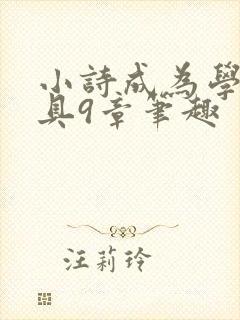 小詩成為學
具9章筆趣
汪莉玲